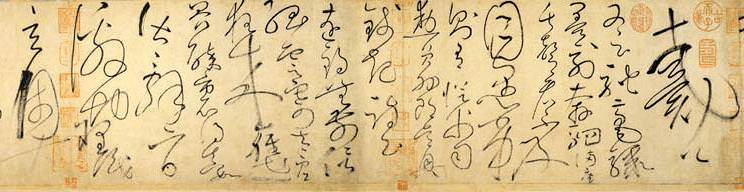 戴公
又云馳毫驟
墨列奏駟滿座
失聲看不及
目愚劣
則有從父司
勳員外郎吳興
錢起詩云
遠錫無前侶
孤雲寄太虛
狂來輕世
界醉裏得真
如皆辭旨
激切理識
玄奧